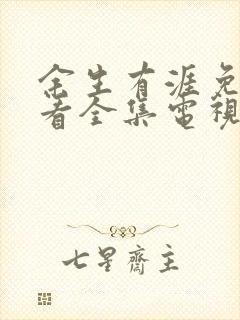 余生有涯免
看全集電視
七星齋主